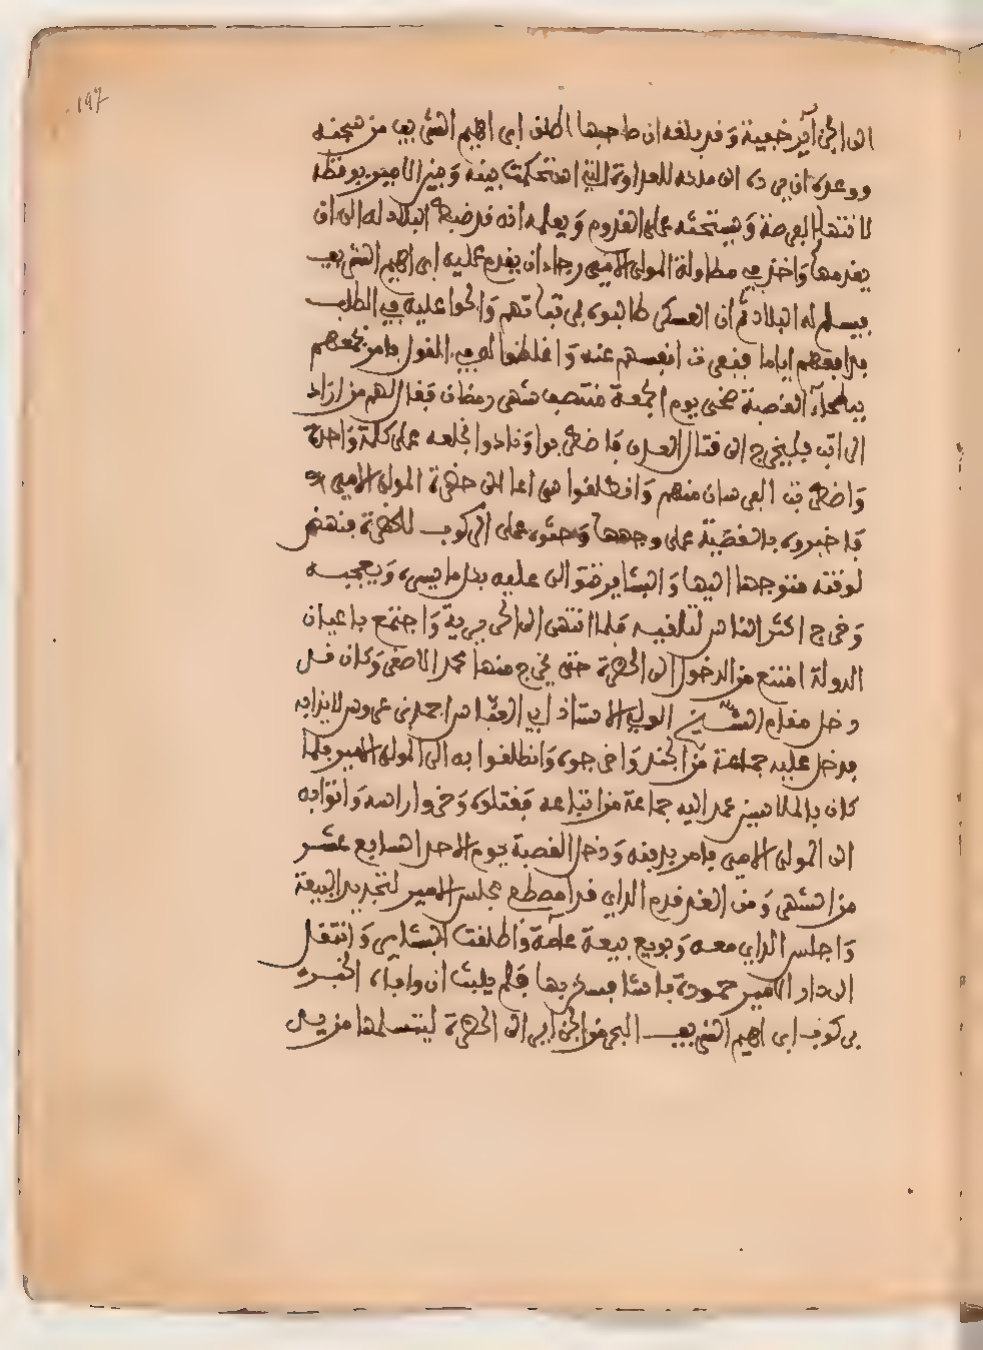 ١٩٧
الى الجزائر خفية وقد بلغه ان صاحبها اطلق ابراهيم الشريف من سجنه
ووعده ان يرده الى ملكه للعداوة التي استحكمت بينه وبين الامير بوقطه
لانتهاز الفرصة ويستحثه على القدوم ويعلمه انه قد ضبط البلاد له الى ان
يقدمها واخذ في مطاولة المولى الامير رجاء ان يقدم عليه ابراهيم الشريف
فيسلم له البلاد ثم ان العسكر طالبوه بمرتباتهم والحوا عليه في الطلب
فدافعهم اياما فنفرت انفسهم عنه واغلظوا له في القول فامر بجمعهم
ببطحاء القصبة ضحى يوم الجمعة منتصف شهر رمضان فقال لهم من اراد
الراتب فليخرج الى قتال العدو فاضطربوا ونادوا بخلعه على كلمة واحدة
واضطربت الفرسان منهم وانطلقوا سراعا الى حضرة المولى الامير
فاخبروه بالقضية على وجهها وحثوه على الركوب للحضرة فنهض
لوقته متوجها اليها والبشاير تتوالى عليه بكل ما يسره ويعجبه
وخرج اكثر الناس لتلقيه فلما انتهى الى الحريرية واجتمع باعيان
الدولة امتنع من الدخول الى الحضرة حتى يخرج منها محمد الاصغر وكان قد
دخل مقام الشيخ الولي الاستاذ ابي العباس احمد بن عروس لائذا به
فدخل عليه جماعة من الجند واخرجوه وانطلقوا به الى المولى الامير فلما
كان بالملاسين عمد اليه جماعة من اتباعه فقتلوه وحزوا راسه واتوا به
الى المولى الامير فامر بدفنه ودخل القصبة يوم الاحد السابع عشر
من الشهر ومن الغد قدم الداي قرا مصطفى مجلس الامير لتجديد البيعة
واجلس الداي معه وبويع بيعة عامة واطلقت البشاير وانتقل
الى دار الامير حمودة باشا فسكن بها فلم يلبث ان وافاه الخبر
بركوب ابراهيم الشريف البحر من الجزاير الى الحضرة ليتسلمها من يد